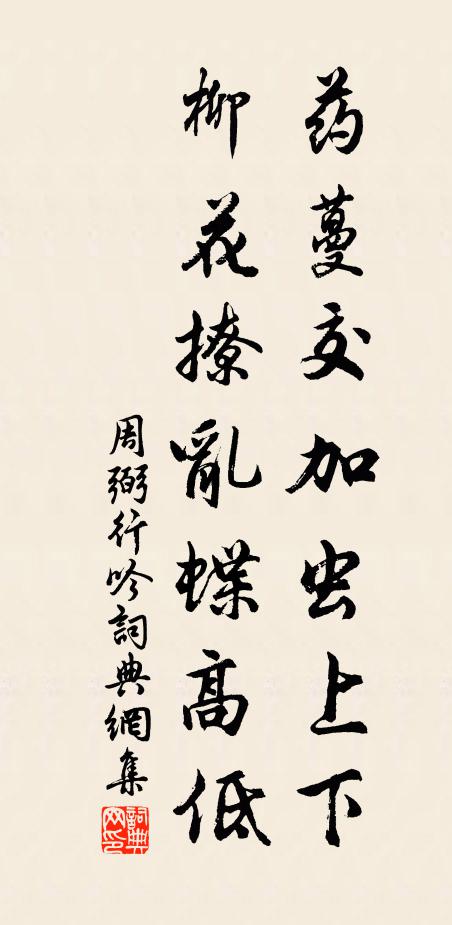 药蔓交加虫上下
柳花撩亂蝶高低
周弼行吟詞典網集
詞典網印